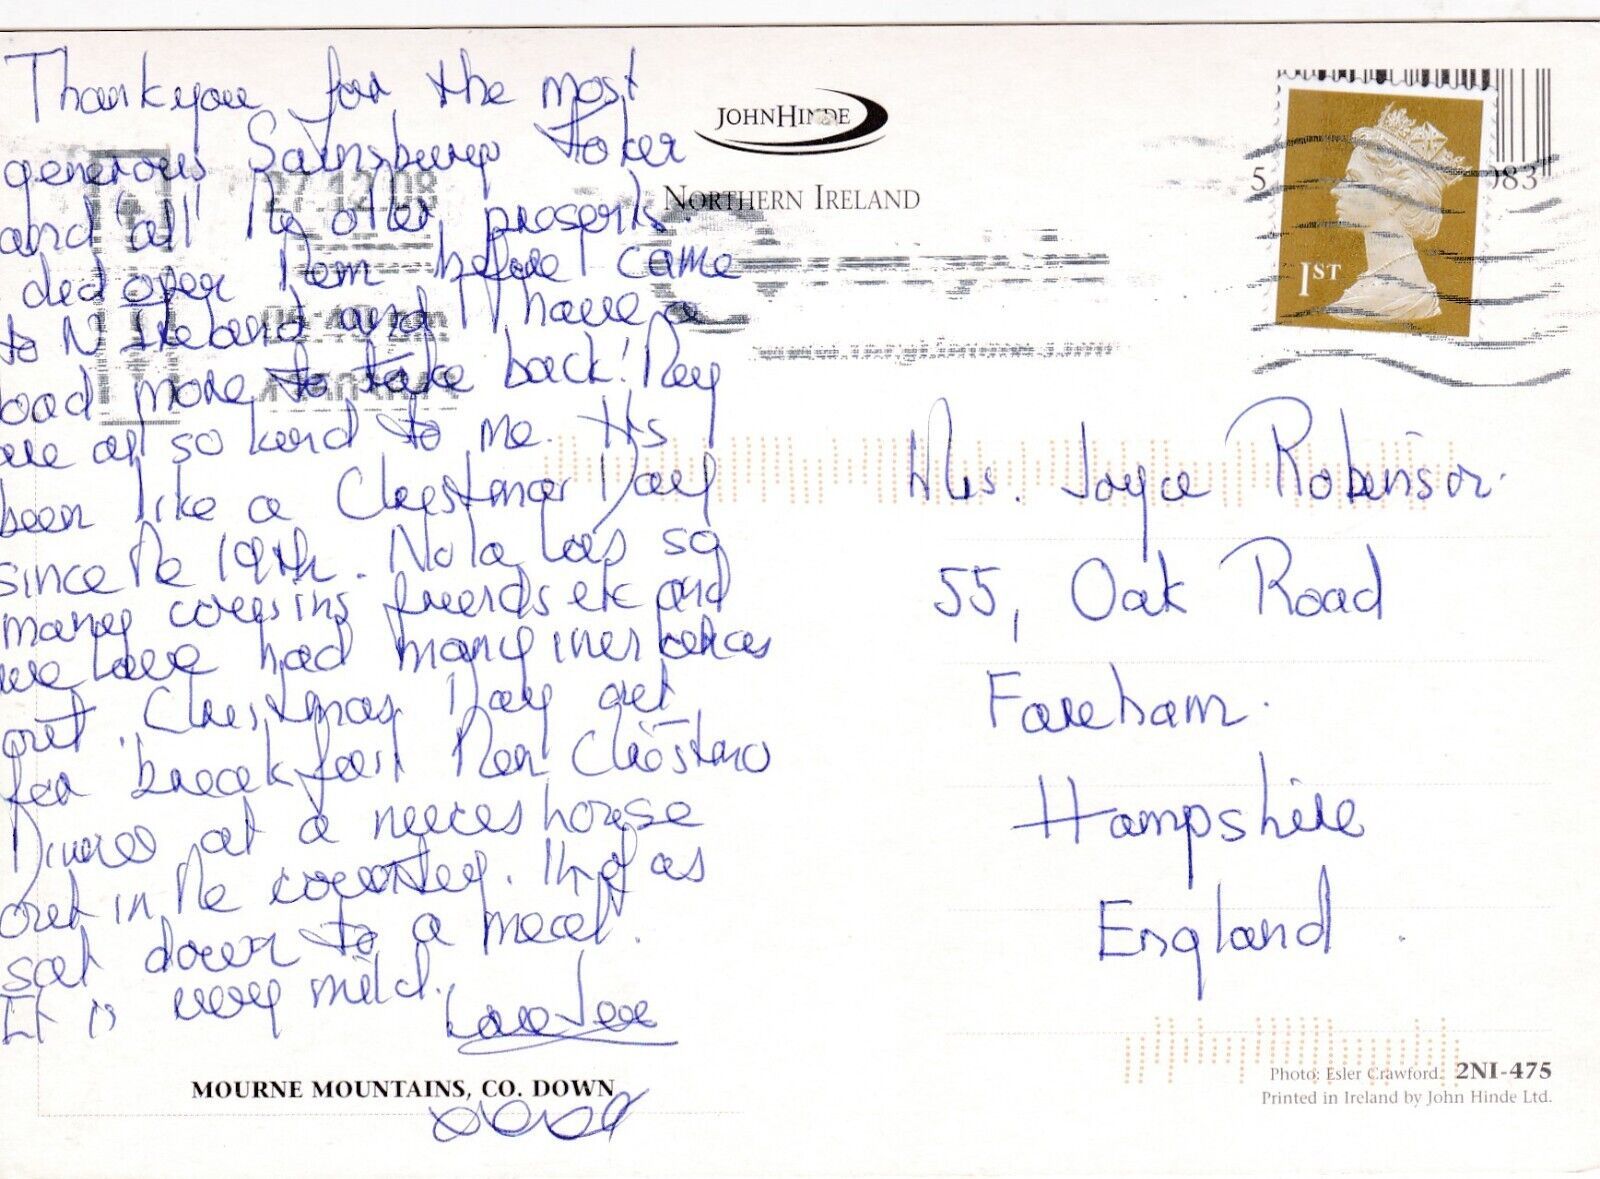 Thankyou for the most
generous Sainsburys Toker
and 'all' the other presents.
I did open them before I came
to N Ireland and I have a
load more to take back! They
are all so kind to me. It's
been like a Christmas Day
since the 19th. Nola has so
many cousins friends etc and
we have had many invertances
out. Christmas Day out
for breakfast then Christmas
Dinner at a neeces house
out in the country. 14 of us
sat down to a meal.
It is very mild.
Love
MOURNE MOUNTAINS, CO. DOWN
JOHNHINDE
NORTHERN IRELAND
27.12.08
5 083
1ST
Mrs. Joyce Robinson.
55, Oak Road
Fareham.
Hampshire
England.
Photo: Esler Crawford. 2NI-475
Printed in Ireland by John Hinde Ltd.